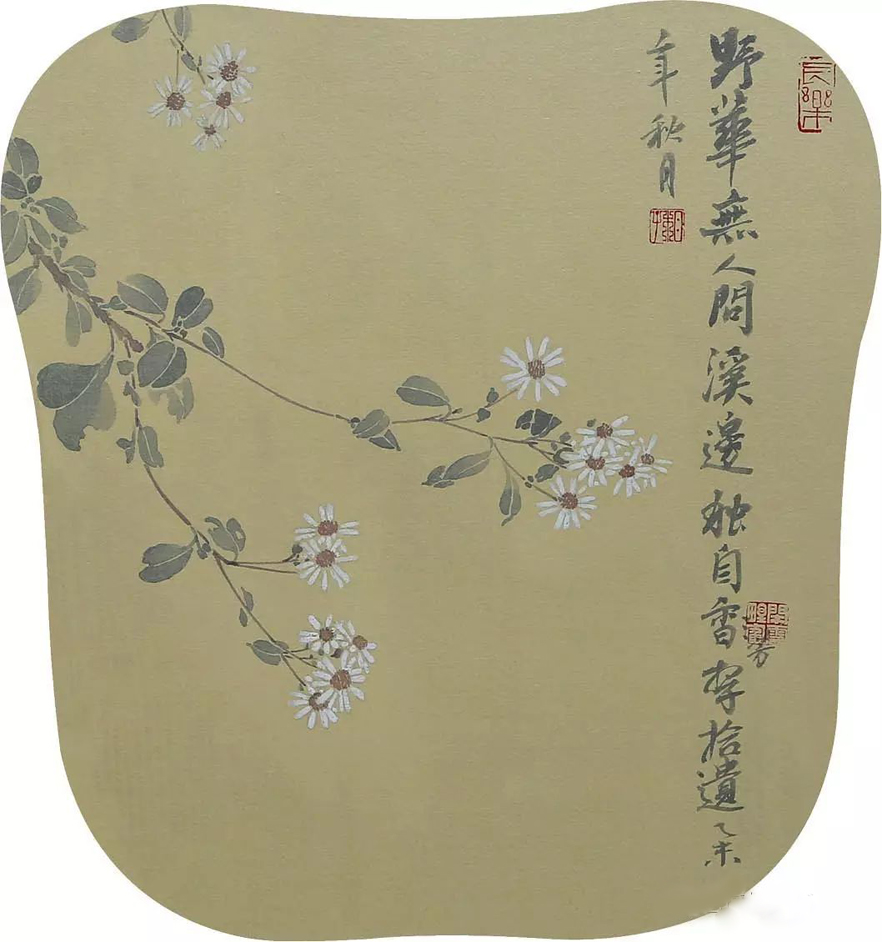 長樂
野華無人問溪邊独自香拾遺乙未
芳
年秋月